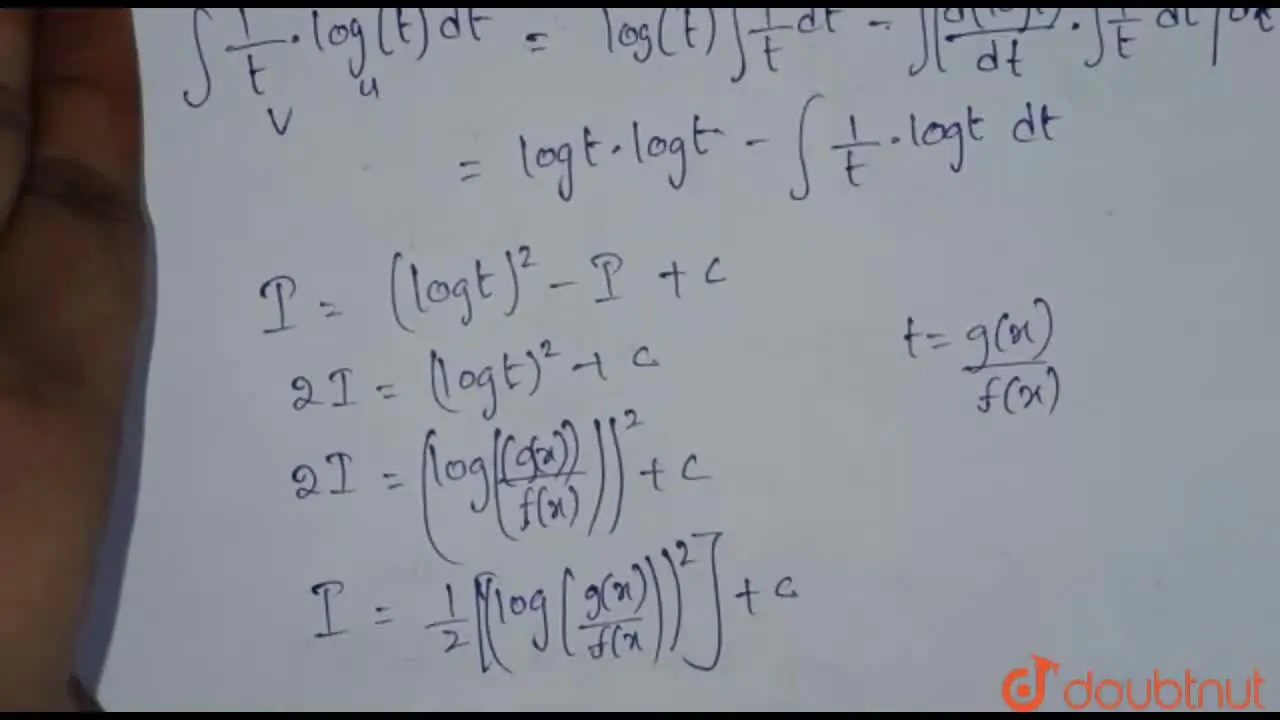 ∫ 1/t · log(t) dt = log(t) ∫ 1/t dt - ∫ | d(logt)/dt · ∫ 1/t dt | dt
V u
= logt · logt - ∫ 1/t · logt dt
I = (logt)² - I + c
t = g(x)/f(x)
2I = (logt)² + c
2I = (log((g(x))/f(x)))² + c
I = 1/2 [(log(g(x)/f(x))²] + c
doubtnut